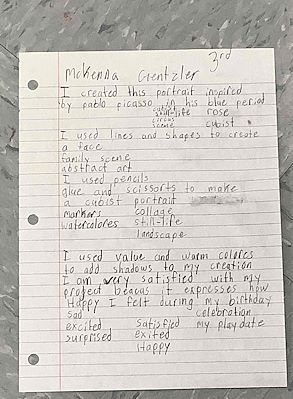 3rd
McKenna Gentzler
I created this portrait inspired
by pablo picasso in his blue period
cubist still-life rose
circus scene cubist
I used lines and shapes to create
a face
family scene
abstract art
I used pencils
glue and scissorts to make
a cubist portrait
markers collage
watercolores still-life
landscape
I used value and warm colores
to add shadows to my creation
I am very satisfied with my
project becaus it expresses how
Happy I felt during my birthday
sad celebration
excited satisfied my playdate
surprised exited
Happy